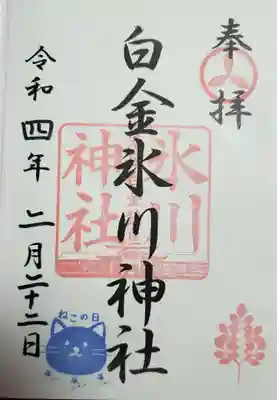 奉拝
白金氷川神社
氷川
神社
令和四年 二月二十二日
ねこの日